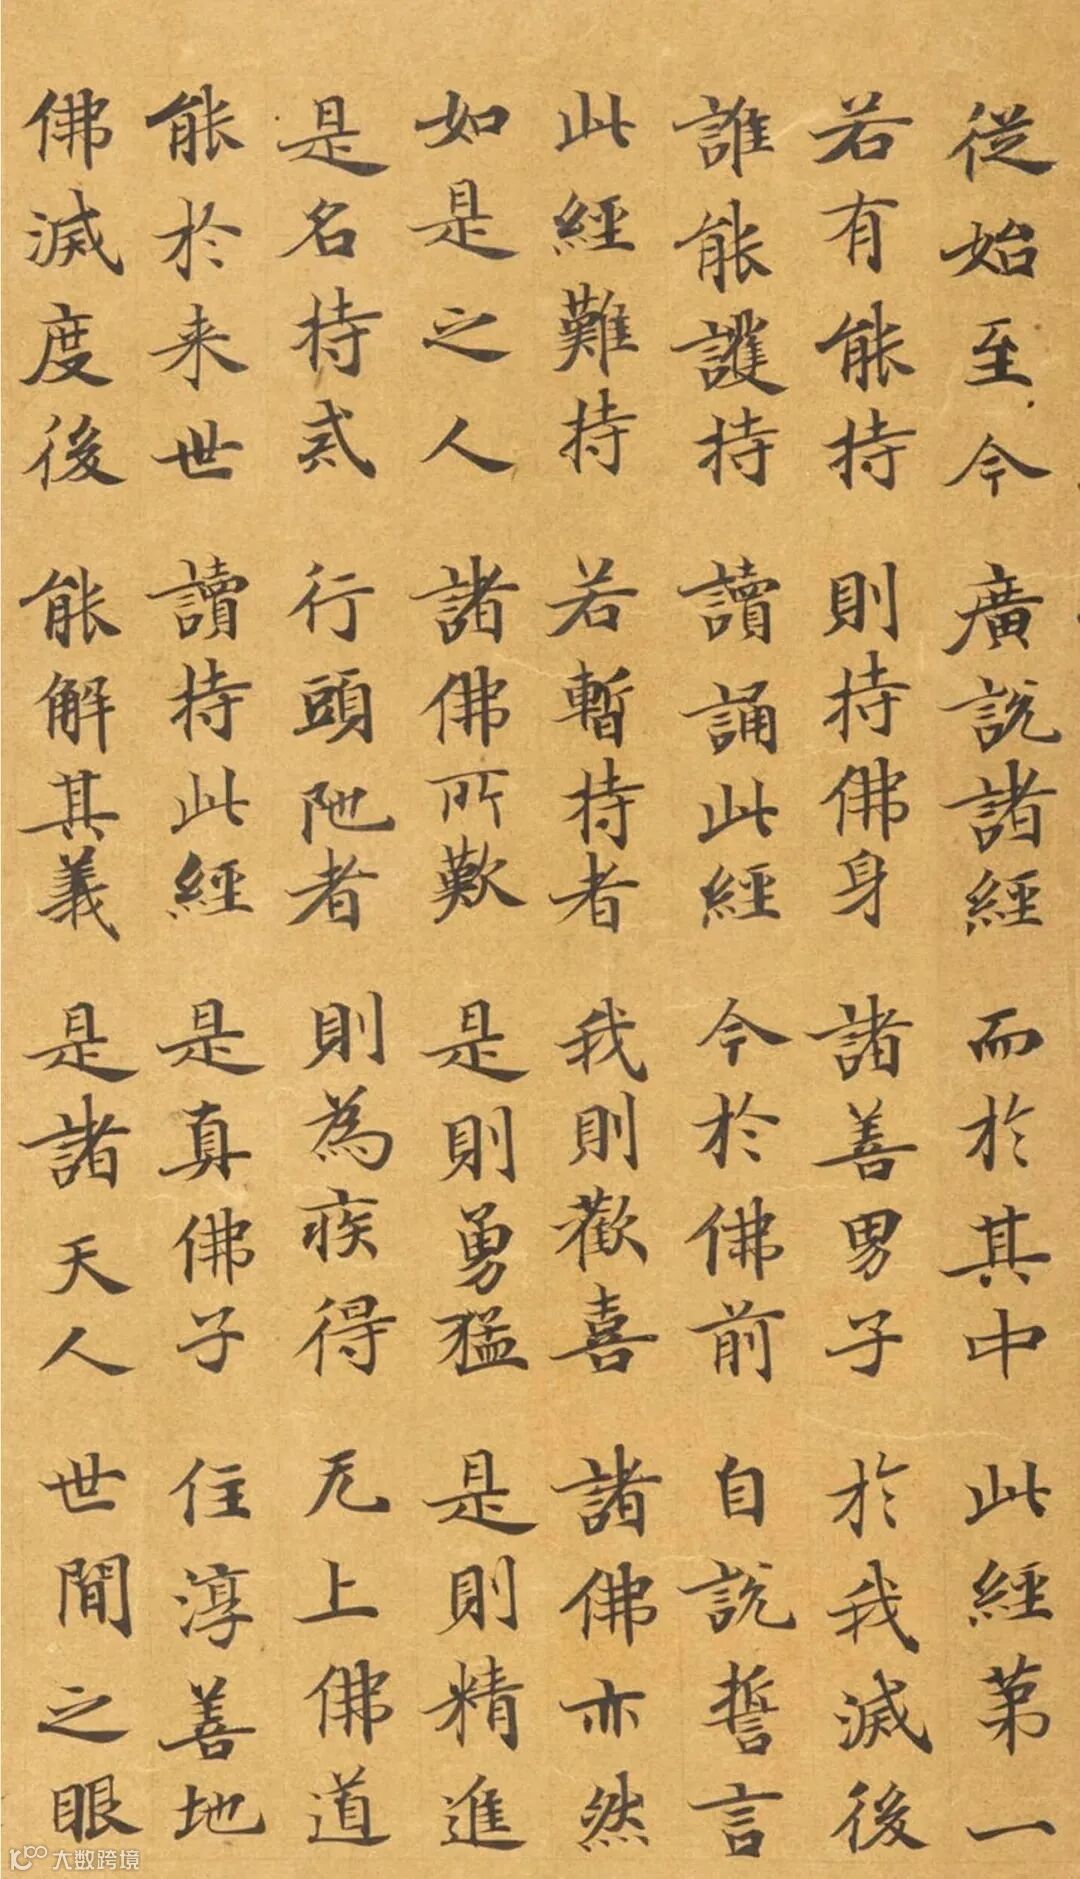 從始至今 廣説諸經 而於其中 此經第一
若有能持 則持佛身 諸善男子 於我滅後
誰能護持 讀誦此經 今於佛前 自説誓言
此經難持 若暫持者 我則歡喜 諸佛亦然
如是之人 諸佛所歎 是則勇猛 是則精進
是名持貳 行頭陁者 則為疾得 无上佛道
能於来世 讀持此經 是真佛子 住淳善地
佛滅度後 能解其義 是諸天人 世間之眼
大数跨境